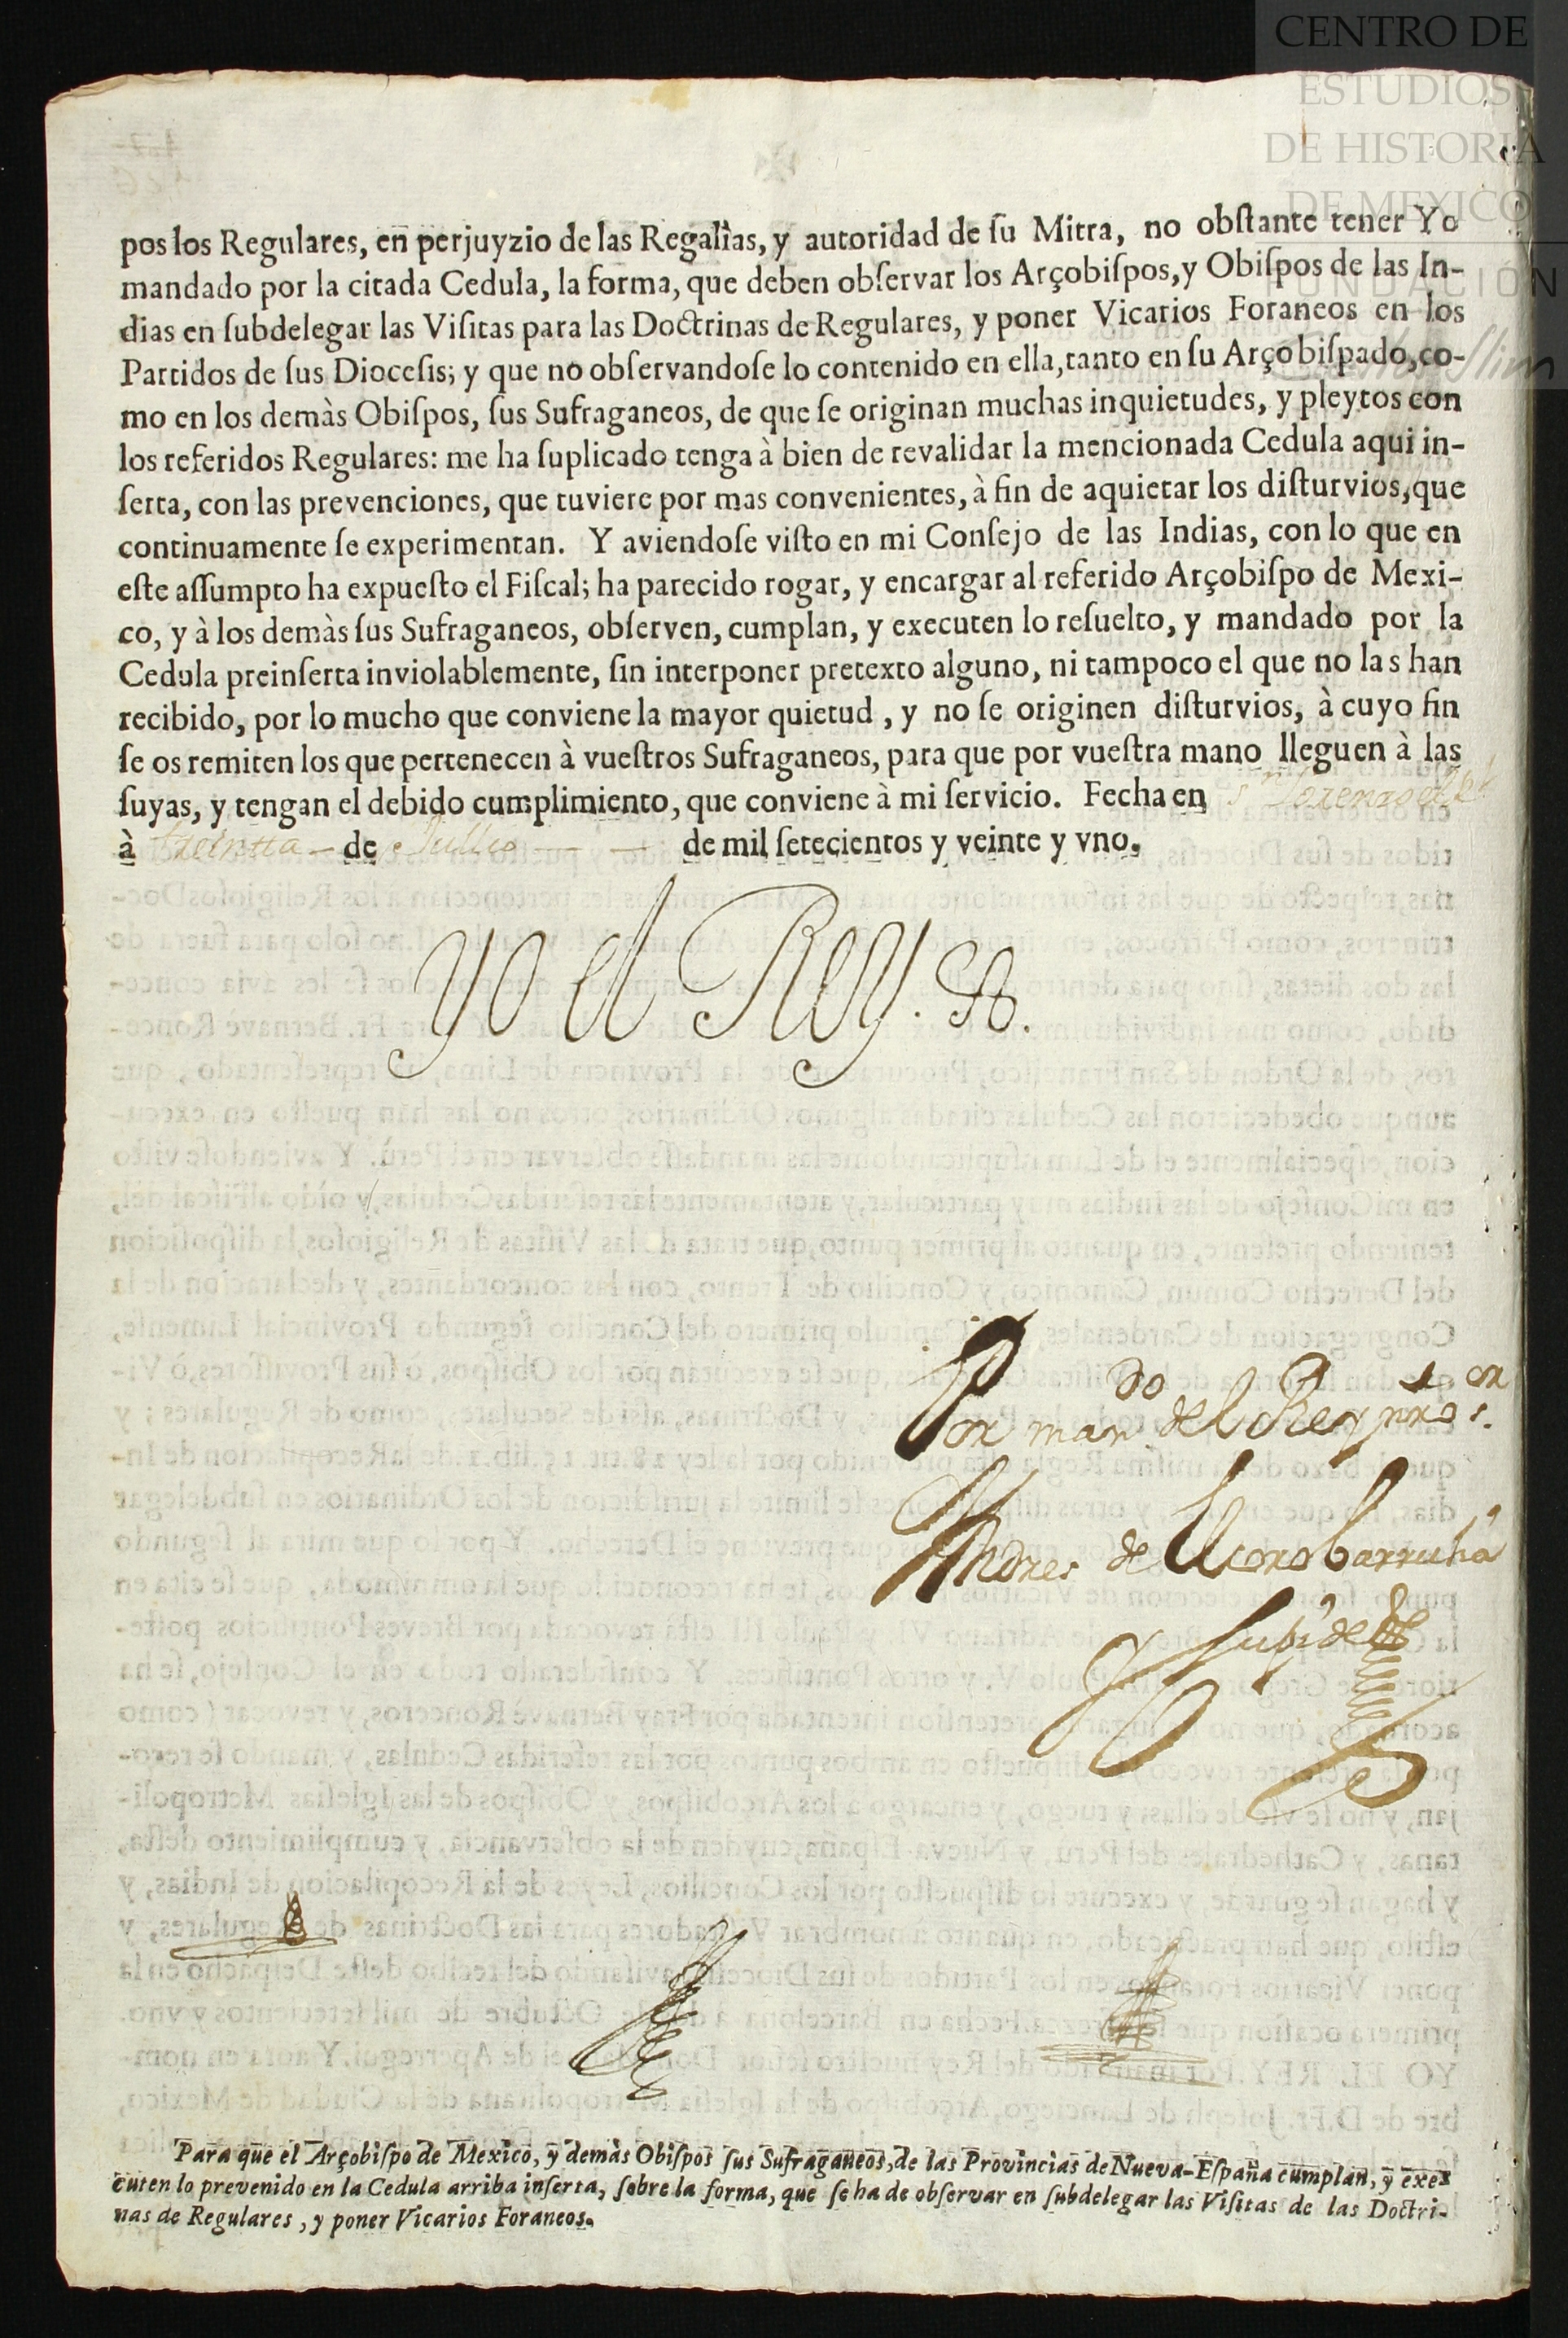 CENTRO DE
ESTUDIOS
DE HISTORIA
DE MEXICO
FUNDACIÓN
Carlos Slim
pos los Regulares, en perjuyzio de las Regalìas, y autoridad de ſu Mitra, no obſtante tener Yo
mandado por la citada Cedula, la forma, que deben obſervar los Arçobiſpos, y Obiſpos de las In-
dias en ſubdelegar las Viſitas para las Doctrinas de Regulares, y poner Vicarios Foraneos en los
Partidos de ſus Dioceſis; y que no obſervandoſe lo contenido en ella, tanto en ſu Arçobiſpado, co-
mo en los demàs Obiſpos, ſus Sufraganeos, de que ſe originan muchas inquietudes, y pleytos con
los referidos Regulares: me ha ſuplicado tenga à bien de revalidar la mencionada Cedula aqui in-
ſerta, con las prevenciones, que tuviere por mas convenientes, à fin de aquietar los diſturvios, que
continuamente ſe experimentan. Y aviendoſe viſto en mi Conſejo de las Indias, con lo que en
eſte aſſumpto ha expueſto el Fiſcal; ha parecido rogar, y encargar al referido Arçobiſpo de Mexi-
co, y à los demàs ſus Sufraganeos, obſerven, cumplan, y executen lo reſuelto, y mandado por la
Cedula preinſerta inviolablemente, ſin interponer pretexto alguno, ni tampoco el que no las han
recibido, por lo mucho que conviene la mayor quietud, y no ſe originen diſturvios, à cuyo fin
ſe os remiten los que pertenecen à vueſtros Sufraganeos, para que por vueſtra mano lleguen à las
ſuyas, y tengan el debido cumplimiento, que conviene à mi ſervicio. Fecha en Sn Lorenzo el Rl
à treintta de Jullio de mil ſetecientos y veinte y vno.
Yo el Rey.
Por mando del Rey nro sor
Andres de
Para que el Arçobiſpo de Mexico, y demàs Obiſpos ſus Sufraganeos, de las Provincias de Nueva-Eſpaña cumplan, y exe-
cuten lo prevenido en la Cedula arriba inſerta, ſobre la forma, que ſe ha de obſervar en ſubdelegar las Viſitas de las Doctri-
nas de Regulares, y poner Vicarios Foraneos.